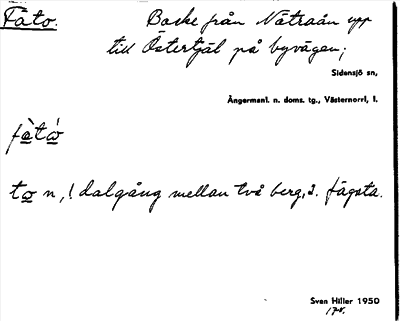 Fåto. Backe från Nätraån upp
till Östertjäl på byvägen;
Sidensjö sn,
Ångermanl. n. doms. tg., Västernorrl. l.
to n, dalgång mellan två berg,
Sven Hiller 1950